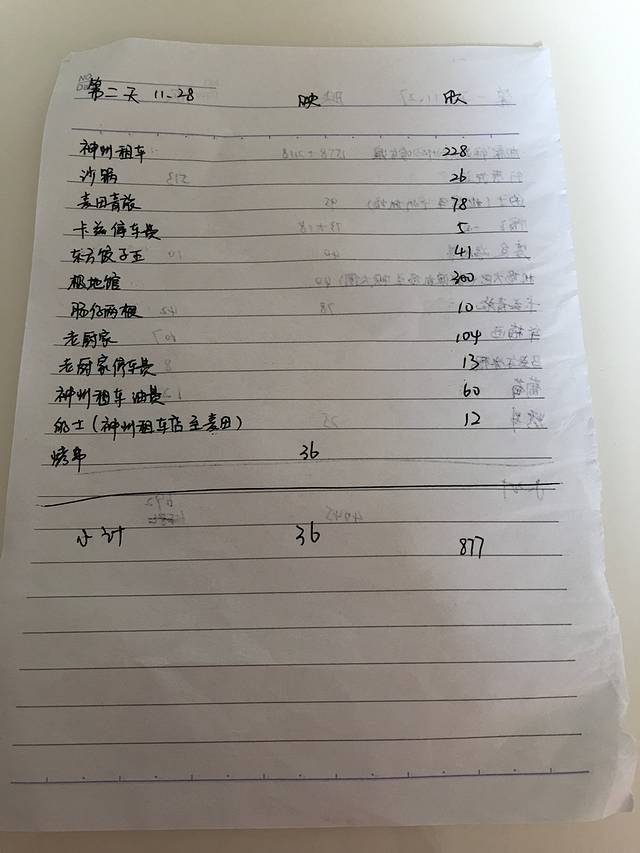 第二天 11.28 映 欣
神州租车 228
沙锅 26
麦田青旅 78
卡兹停车费 5
东方饺子王 41
极地馆 300
肠仔两根 10
老厨家 104
老厨家停车费 13
神州租车油费 60
的士(神州租车店至麦田) 12
烤串 36
小计 36 877